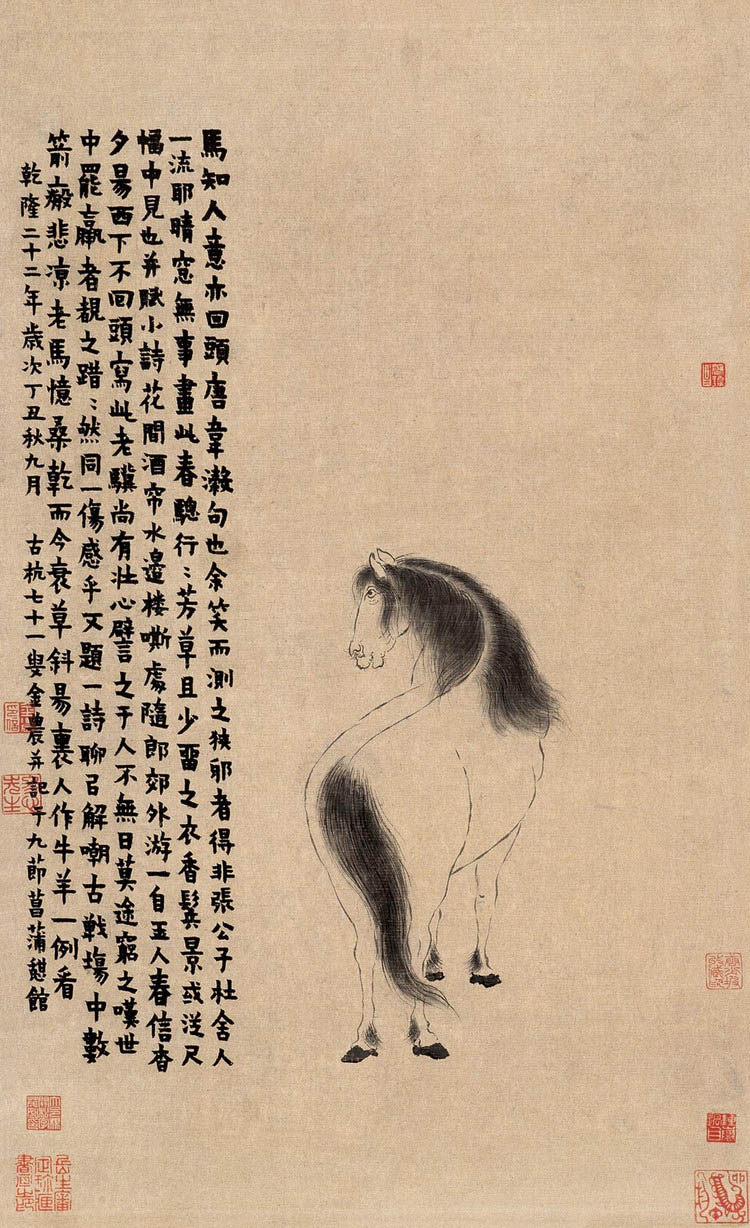 馬知人意亦回頭唐韋澂句也余笑而測之狹邪者得非張公子杜舍人
一流耶晴窓無事畫此春驄行〻芳草且少留之衣香鬂景或從尺
幅中見也并賦小詩花間酒帘水邊楼嘶處隨郎郊外游一自玉人春信杳
夕昜西下不回頭寫此老驥尚有壯心譬言之于人不無日莫途窮之嘆世
中罷羸者覩之踖〻然同一傷感乎又題一詩聊㠯解嘲古戰塲中數
箭瘢悲凉老馬憶桑乾而今衰草斜昜裏人作牛羊一例看
乾隆二十二年歲次丁丑秋九月 古杭七十一叟金農并記于九節菖蒲憩館